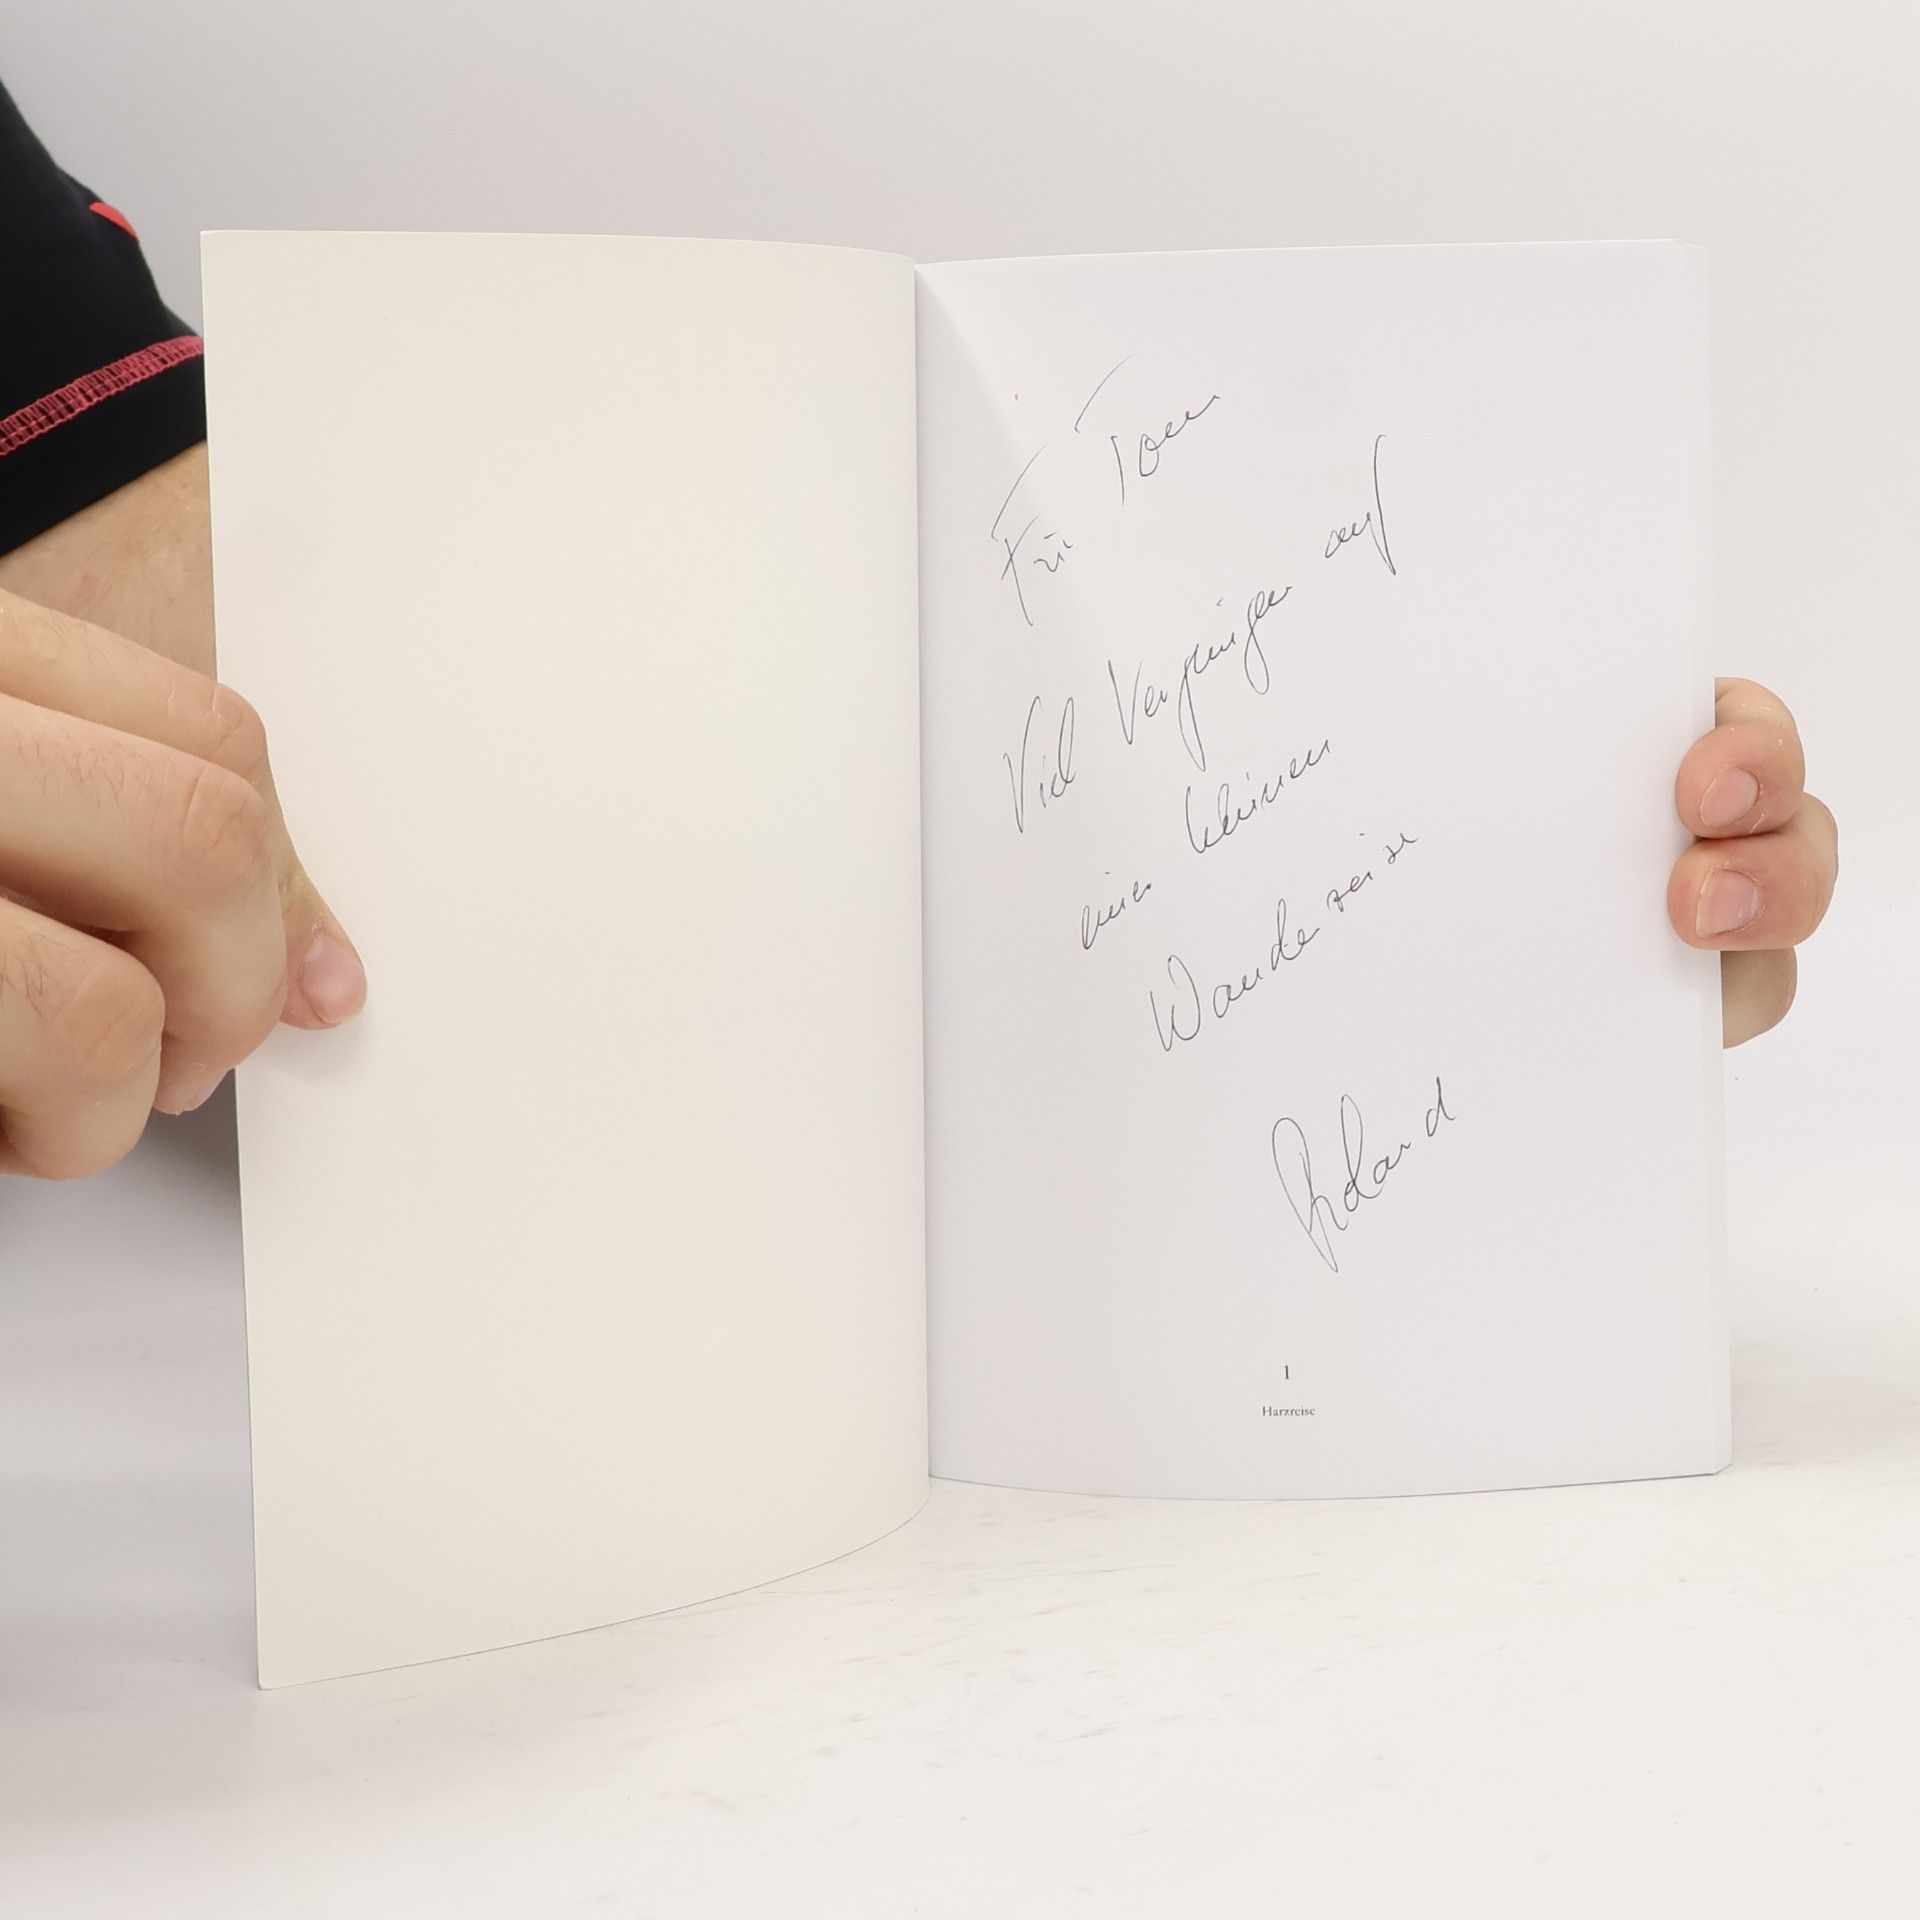 Für Tom
Viel Vergnügen auf
einer kleinen
Wanderreise
Roland
1
Harzreise